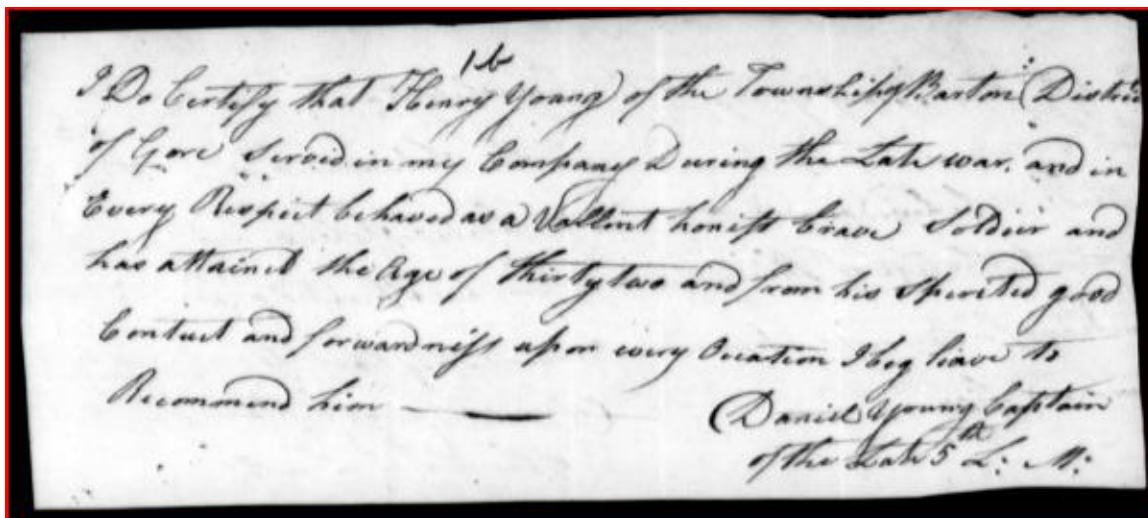 16
I Do Certify that Henry Young of the Township of Barton District
of Gore Served in my Company During the Late war. and in
Every Respect behaved as a Vallent honest brave Soldier and
has attained the Age of thirty two and from his Spereted good
Contuct and forwardness upon every Ocation I beg leave to
Recommend him
Daniel Young Captain
of the Late 5th L: M: